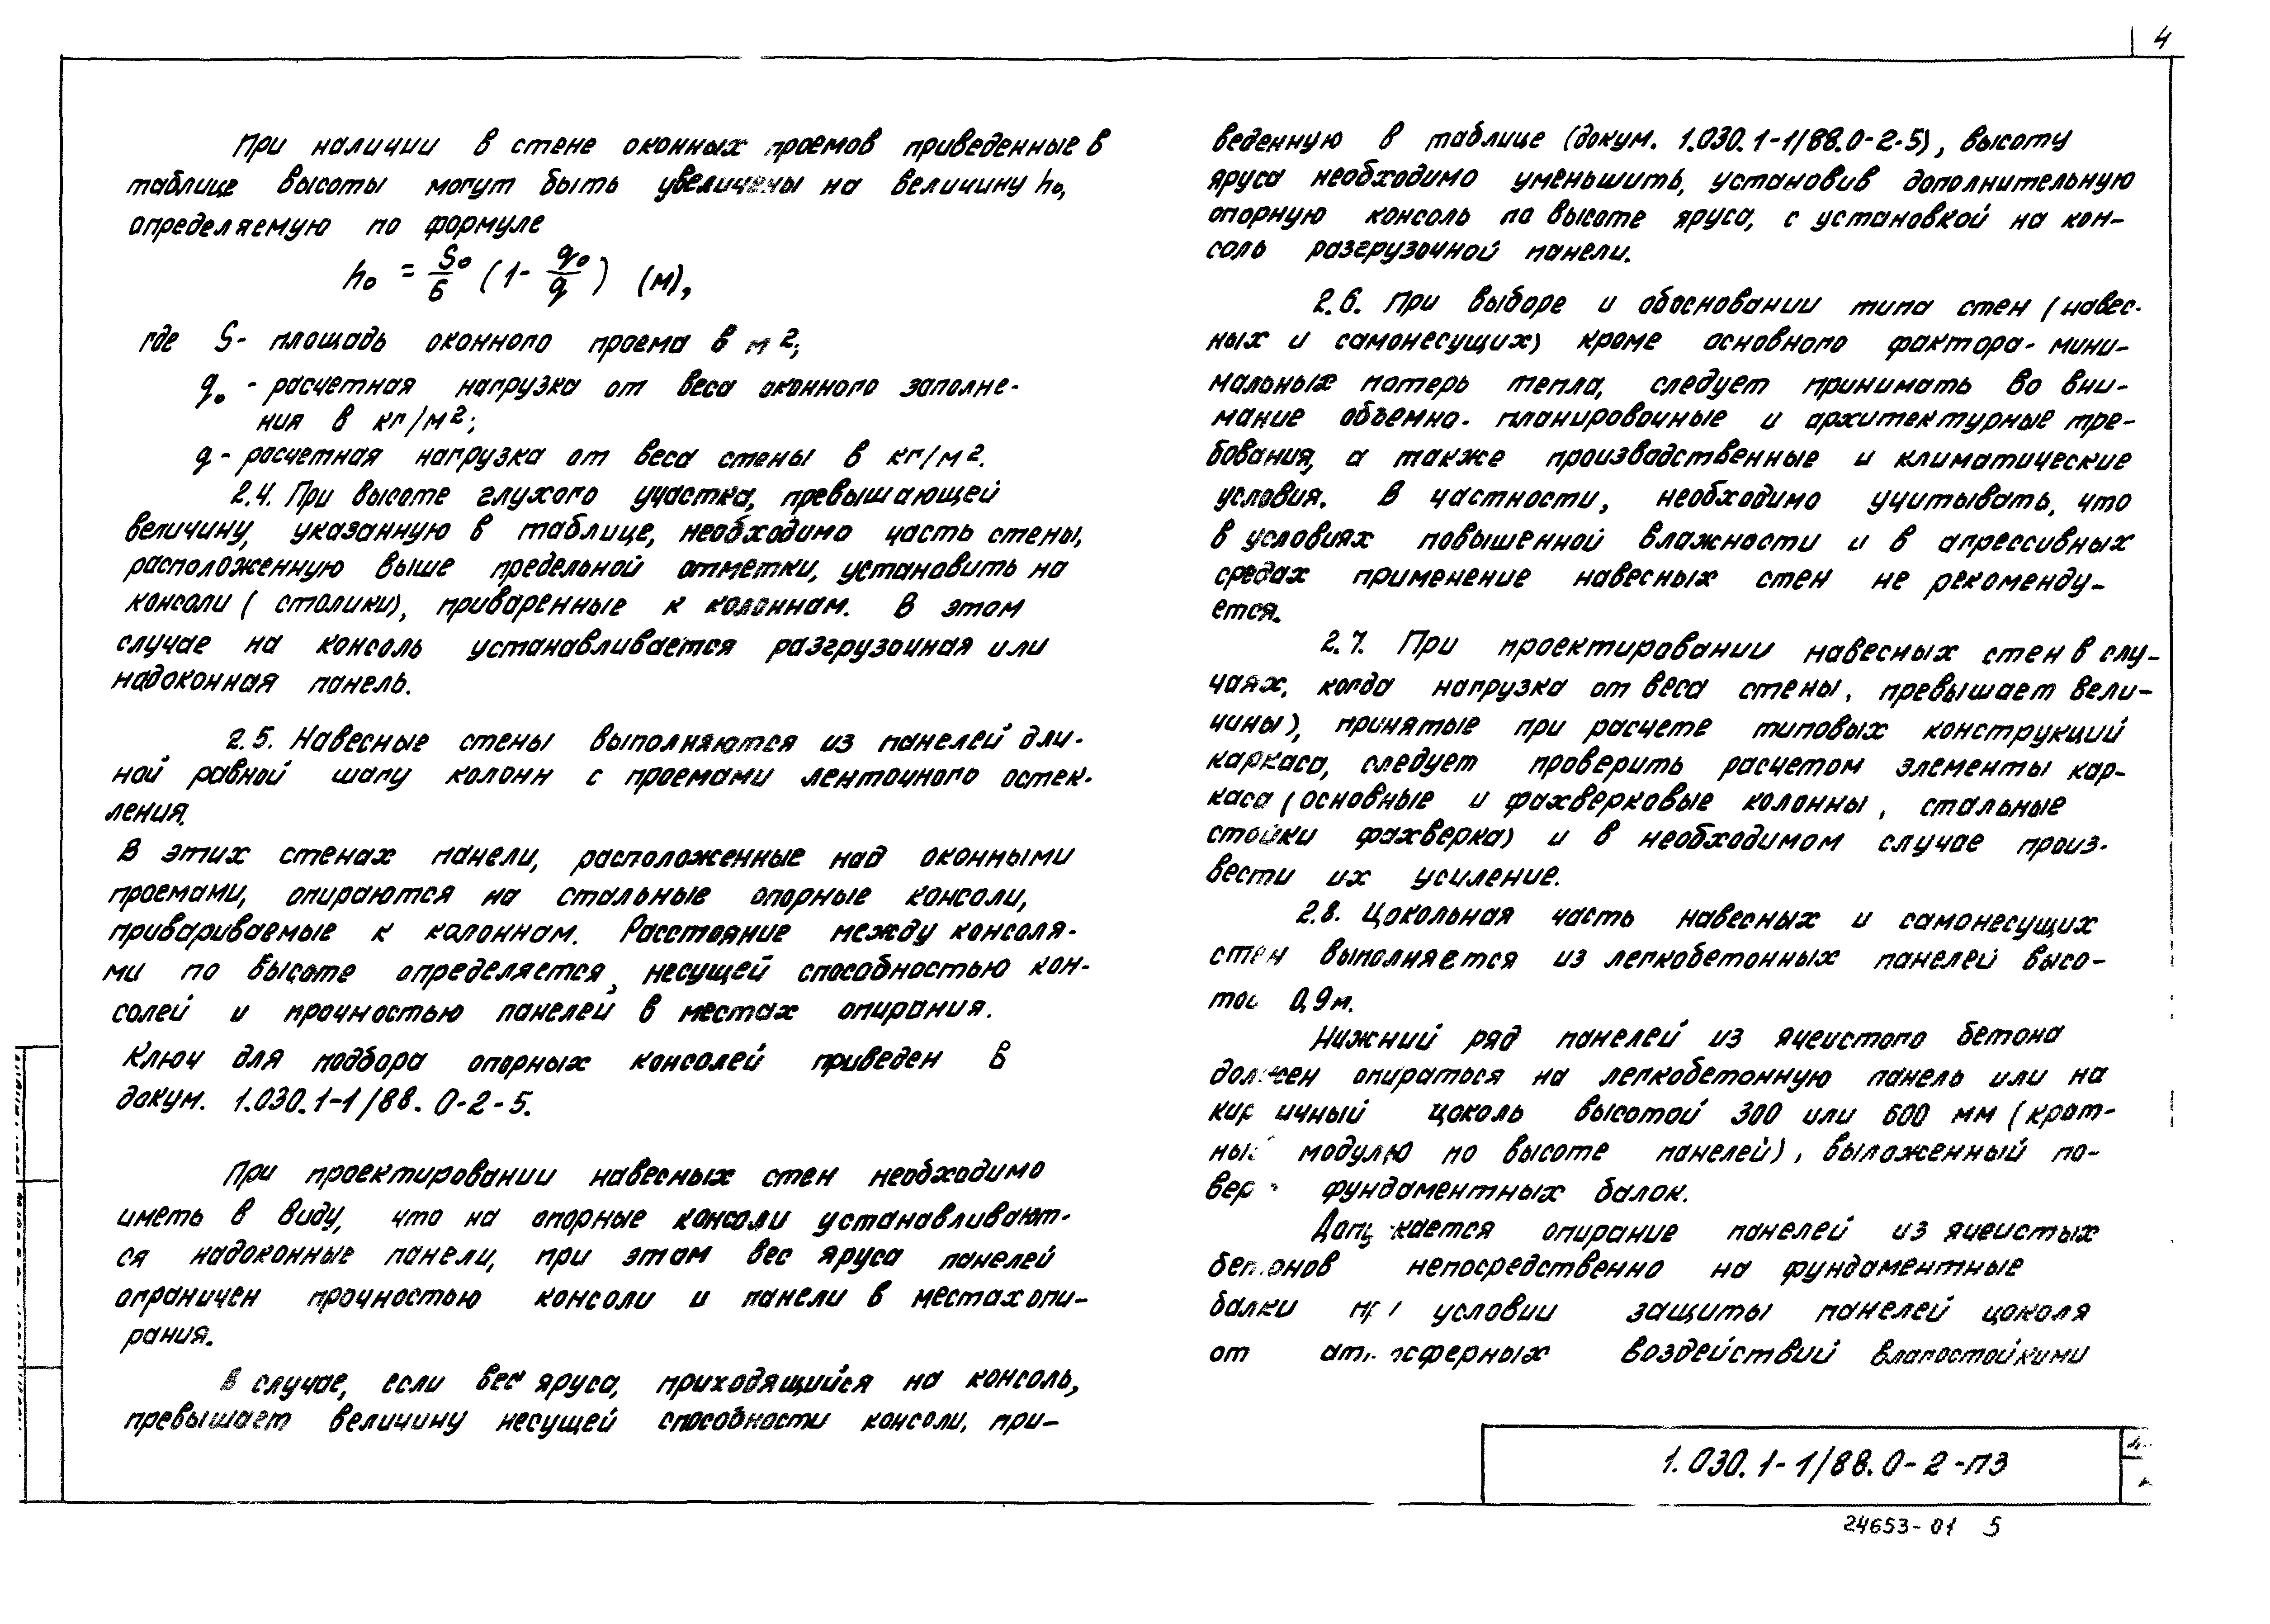 4
При наличии в стене оконных проемов приведенные в
таблице высоты могут быть увеличены на величину h₀,
определяемую по формуле
h₀ = S₀/6 (1 - q₀/q) (м),
где S - площадь оконного проема в м2;
q₀ - расчетная нагрузка от веса оконного заполне-
ния в кг/м2;
q - расчетная нагрузка от веса стены в кг/м2.
2.4. При высоте глухого участка, превышающей
величину, указанную в таблице, необходимо часть стены,
расположенную выше предельной отметки, установить на
консоли (столики), приваренные к колоннам. В этом
случае на консоль устанавливается разгрузочная или
надоконная панель.
2.5. Навесные стены выполняются из панелей дли-
ной равной шагу колонн с проемами ленточного остек-
ления.
В этих стенах панели, расположенные над оконными
проемами, опираются на стальные опорные консоли,
привариваемые к колоннам. Расстояние между консоля-
ми по высоте определяется, несущей способностью кон-
солей и прочностью панелей в местах опирания.
Ключ для подбора опорных консолей приведен в
докум. 1.030.1-1/88.0-2-5.
При проектировании навесных стен необходимо
иметь в виду, что на опорные консоли устанавливают-
ся надоконные панели, при этом вес яруса панелей
ограничен прочностью консоли и панели в местах опи-
рания.
В случае, если вес яруса, приходящийся на консоль,
превышает величину несущей способности консоли, при-
веденную в таблице (докум. 1.030.1-1/88.0-2-5), высоту
яруса необходимо уменьшить, установив дополнительную
опорную консоль по высоте яруса, с установкой на кон-
соль разгрузочной панели.
2.6. При выборе и обосновании типа стен (навес-
ных и самонесущих) кроме основного фактора - мини-
мальных потерь тепла, следует принимать во вни-
мание объемно-планировочные и архитектурные тре-
бования, а также производственные и климатические
условия. В частности, необходимо учитывать, что
в условиях повышенной влажности и в агрессивных
средах применение навесных стен не рекоменду-
ется.
2.7. При проектировании навесных стен в слу-
чаях, когда нагрузка от веса стены, превышает вели-
чины), принятые при расчете типовых конструкций
каркаса, следует проверить расчетом элементы кар-
каса (основные и фахверковые колонны, стальные
стойки фахверка) и в необходимом случае произ-
вести их усиление.
2.8. Цокольная часть навесных и самонесущих
стен выполняется из легкобетонных панелей высо-
той 0,9м.
Нижний ряд панелей из ячеистого бетона
должен опираться на легкобетонную панель или на
кирпичный цоколь высотой 300 или 600 мм (крат-
ный модулю по высоте панелей), выложенный по-
верх фундаментных балок.
Допускается опирание панелей из ячеистых
бетонов непосредственно на фундаментные
балки при условии защиты панелей цоколя
от атмосферных воздействий влагостойкими
1.030.1-1/88.0-2-ПЗ
24653-01 5